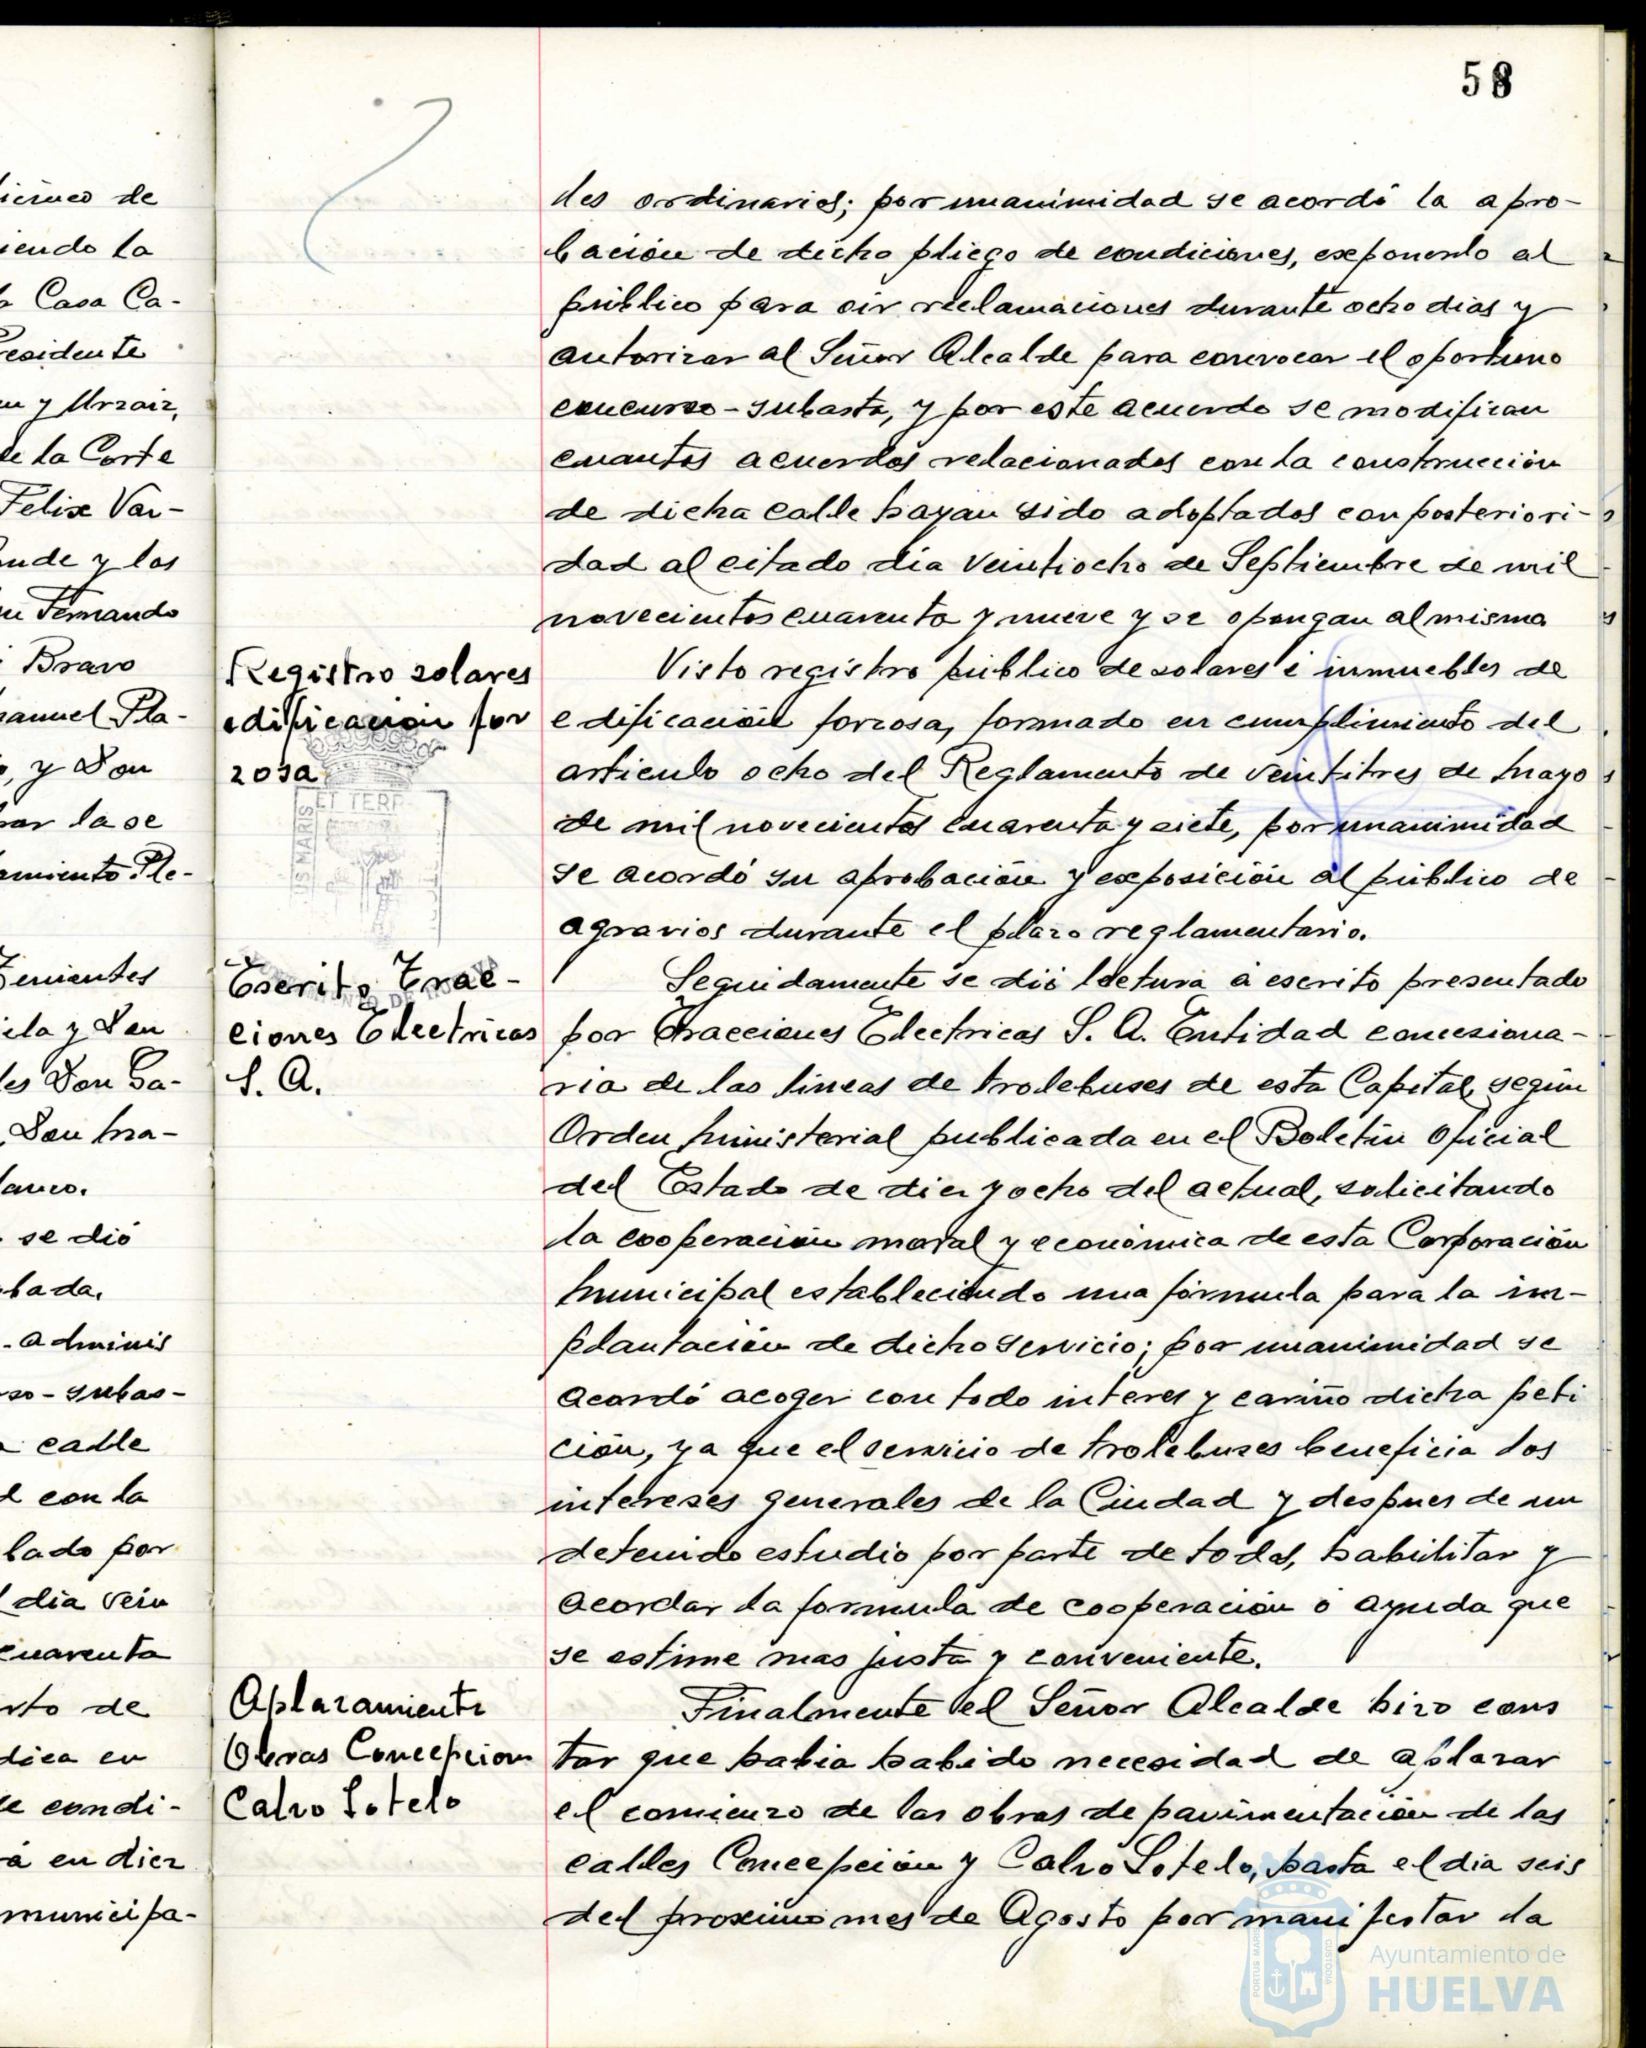 58
les ordinarios; por unanimidad se acordó la apro-
bación de dicho pliego de condiciones, exponerlo al
público para oir reclamaciones durante ocho dias y
autorizar al Señor Alcalde para convocar el oportuno
concurso-subasta, y por este acuerdo se modifican
cuantos acuerdos relacionados con la construcción
de dicha calle hayan sido adoptados con posteriori-
dad al citado dia veintiocho de Septiembre de mil
novecientos cuarenta y nueve y se opongan al mismo
Registro solares
edificación for
zosa
Visto registro público de solares é inmuebles de
edificación forzosa, formado en cumplimiento del
articulo ocho del Reglamento de veintitres de Mayo
de mil novecientos cuarenta y siete, por unanimidad
se acordó su aprobación y exposición al público de
agravios durante el plazo reglamentario.
Escrito Trac-
ciones Electricas
S. A.
Seguidamente se dió lectura á escrito presentado
por Tracciones Electricas S. A. Entidad concesiona-
ria de las lineas de trolebuses de esta Capital, según
Orden Ministerial publicada en el Boletin Oficial
del Estado de diez y ocho del actual, solicitando
la cooperación moral y económica de esta Corporación
Municipal estableciendo una fórmula para la im-
plantación de dicho servicio; por unanimidad se
acordó acoger con todo interes y cariño dicha peti
ción, ya que el servicio de trolebuses beneficia los
intereses generales de la Ciudad y despues de un
detenido estudio por parte de todos, habilitar y
acordar la formula de cooperación ó ayuda que
se estime mas justa y conveniente.
Aplazamiento
Obras Concepcion
Calvo Sotelo
Finalmente el Señor Alcalde hizo cons
tar que habia habido necesidad de aplazar
el comienzo de las obras de pavimentación de las
calles Concepción y Calvo Sotelo, hasta el dia seis
del proximo mes de Agosto por manifestar la
Ayuntamiento de
HUELVA
iendo la
Casa Ca-
y Urzaiz,
de la Corte
Felix Var-
y los
Fernando
Bravo
Pla-
y Don
la se
Ple-
Tenientes
y Don
Don Ga-
Don Ma-
se dió
Adminis
subas-
calle
con la
por
dia vein
cuarenta
de
en
condi-
á en diez
municipa-